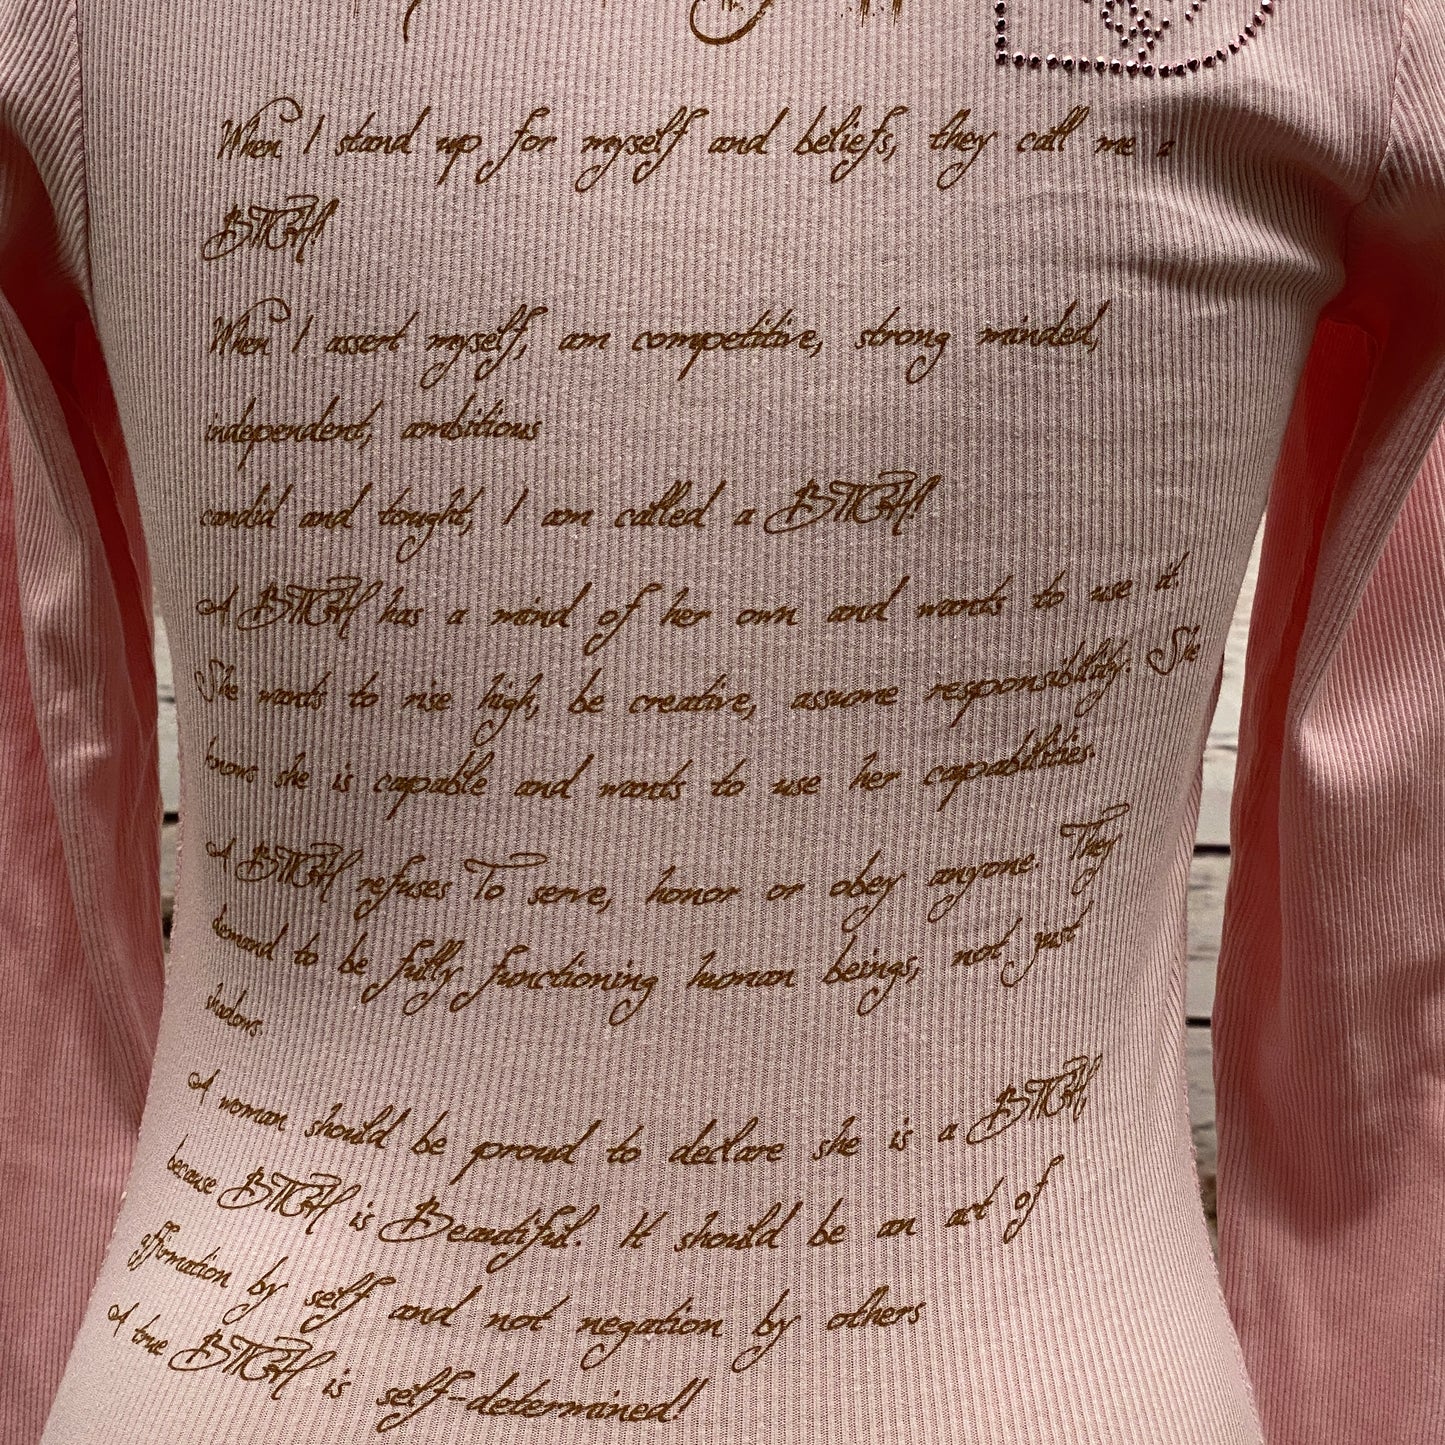 When I stand up for myself and beliefs, they call me a
BITCH!
When I assert myself, am competitive, strong minded,
independent, ambitious
candid and tought, I am called a BITCH!
A BITCH has a mind of her own and wants to use it.
She wants to rise high, be creative, assume responsibility. She
knows she is capable and wants to use her capabilities.
A BITCH refuses To serve, honor or obey anyone. They
demand to be fully functioning human beings, not just
shadows
A woman should be proud to declare she is a BITCH,
because BITCH is Beautiful. It should be an act of
affirmation by self and not negation by others
A true BITCH is self-determined!